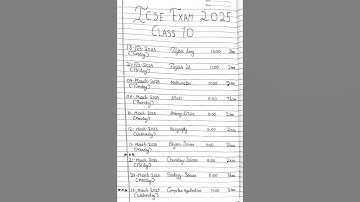 ICSE EXAM 2025
CLASS 10
18-Feb-2025 English Lang 11:00 2hrs
(Tuesday)
21-Feb-2025 English Lit 11:00 2hrs
(Friday)
04-March-2025 Mathematics 11:00
(Tuesday)
-March-2025 Hindi 11:00
(Thursday)
-March-2025 11:00 2hrs
(Monday)
-March-2025 Geography 11:00 2hrs
(Wednesday)
17-March-2025 Physics Science 11:00 2hrs
(Monday)
21-March-2025 Chemistry Science 11:00 2hrs
(Friday)
-March-2025 Biology Science 11:00 2hrs
(Monday)
-March-2025 Computer Applications 11:00 2hrs
(Wednesday)